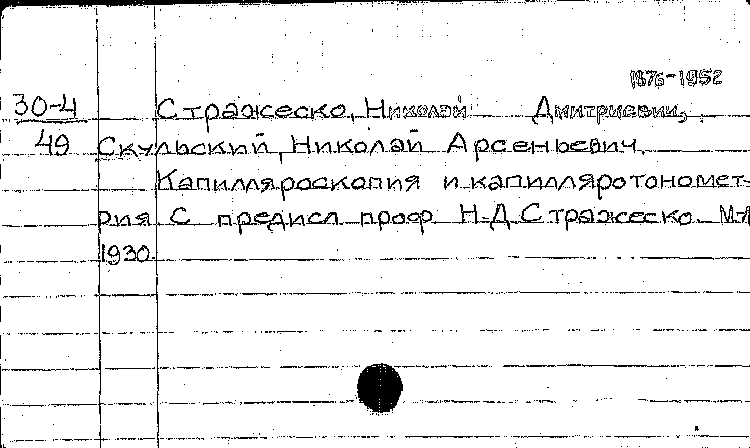 1876-1952
30-4 Стражеско, Николай Дмитриевич,
49 Скульский, Николай Арсеньевич.
Капилляроскопия и капилляротономет-
рия С предисл. проф. Н.Д. Стражеско. М-Л
1930.